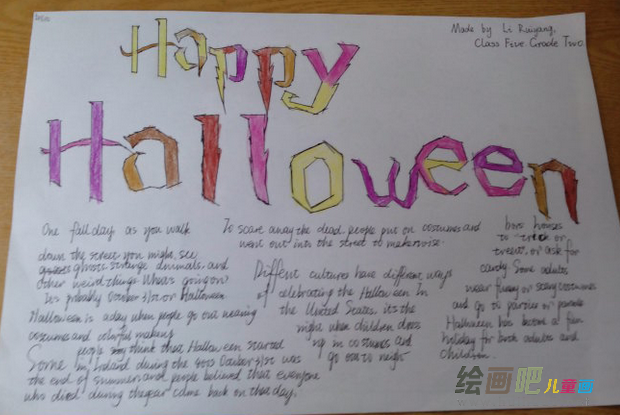 Made by Li Ruiyang,
Class Five Grade Two
Happy
Halloween
One fall day as you walk
down the street you might, see
ghosts strange animals, and
other weird things What's going on
It's probably October 31st or Halloween
Halloween is a day when people go out wearing
costumes and colorful
Some people say think that Halloween started
in Ireland during the October 31st was
the end of summer, and people believed that everyone
who died during the year came back on that day.
To scare away the dead, people put on costumes and
went out into the street to make noise.
Different cultures have different ways
of celebrating the Halloween In
the United States, it's the
night when children dress
up in costumes and
go out to
houses
to trick or
treat, or ask for
candy Some adults
wear funny or scary costumes
and go to parties or parade
Halloween has become a fun
holiday for both adults and
Children.
绘画吧儿童画